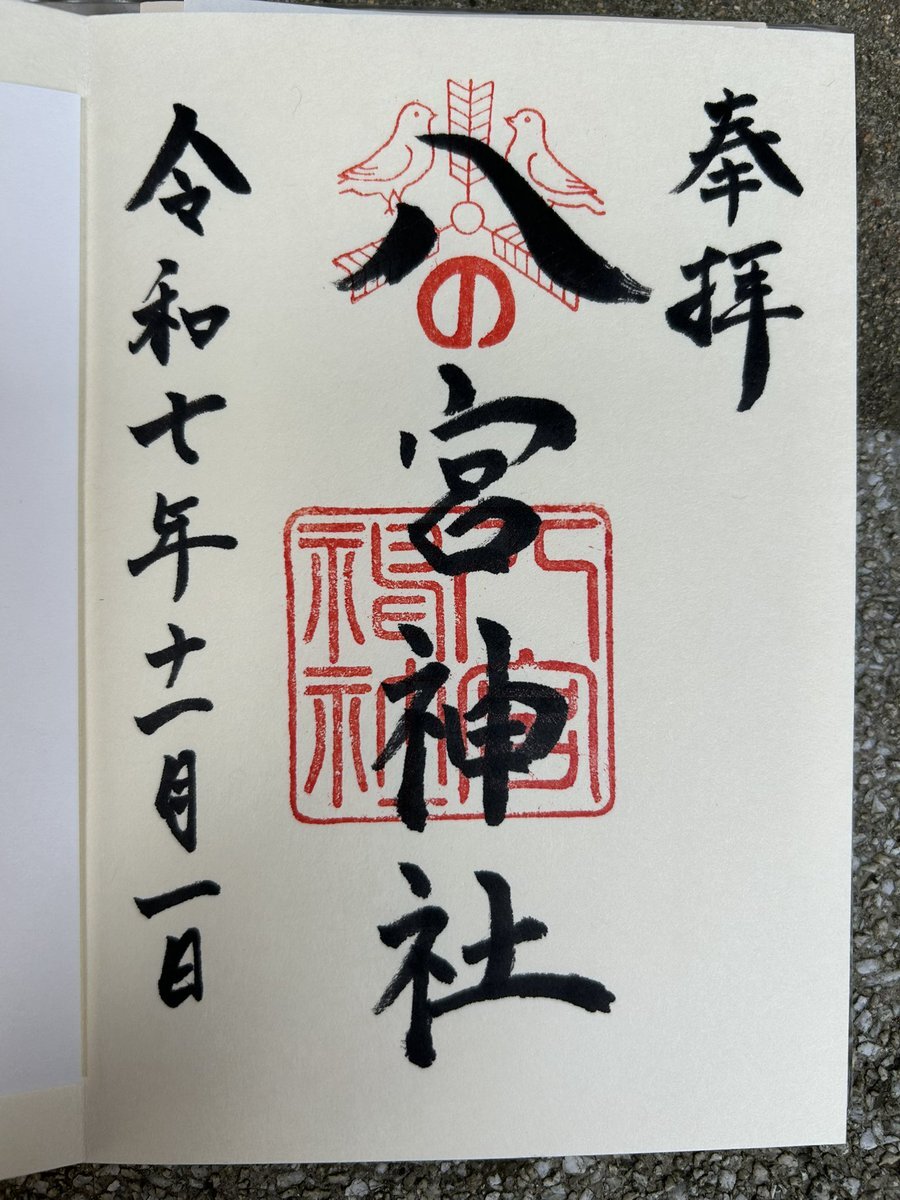 奉拝
八の宮神社
八宮神社
令和七年十一月一日